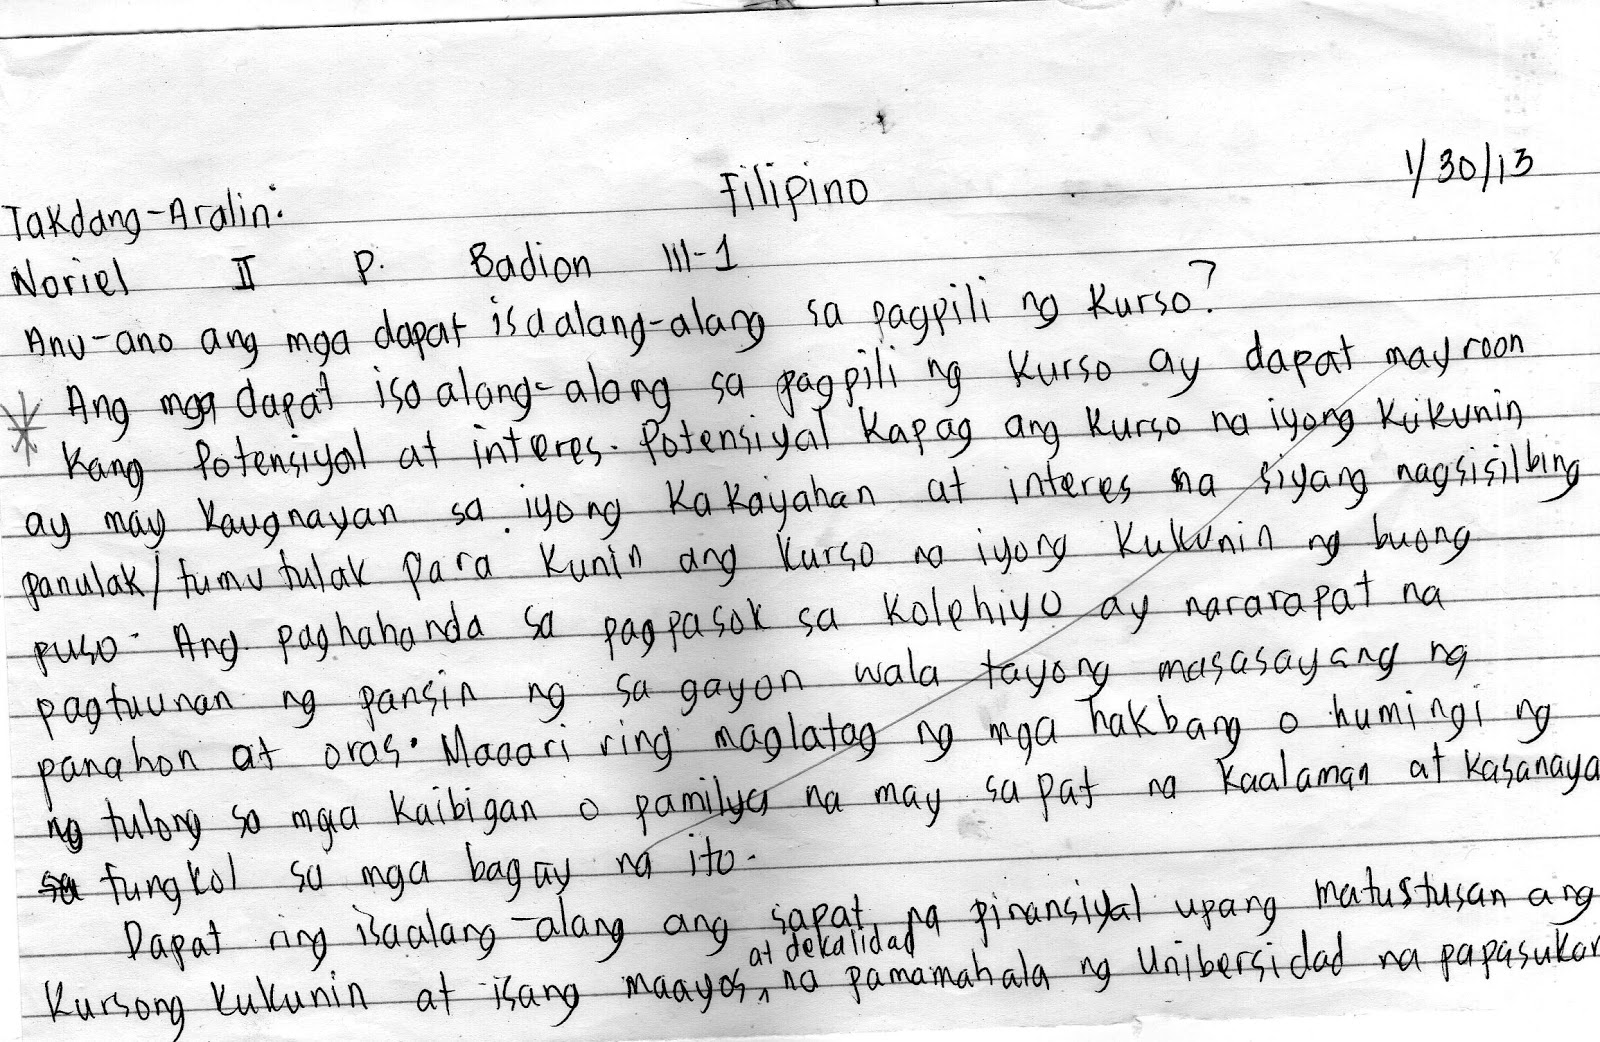 Filipino
1/30/13
Takdang-Aralin:
Noriel II P. Badion III-1
Anu-ano ang mga dapat isaalang-alang sa pagpili ng kurso?
Ang mga dapat isaalang-alang sa pagpili ng kurso ay dapat mayroon
kang potensiyal at interes. Potensiyal kapag ang kurso na iyong kukunin
ay may kaugnayan sa iyong kakayahan at interes na siyang nagsisilbing
panulak/tumutulak para kunin ang kurso na iyong kukunin ng buong
puso. Ang paghahanda sa pagpasok sa kolehiyo ay nararapat na
pagtuunan ng pansin ng sa gayon wala tayong masasayang ng
panahon at oras. Maaari ring maglatag ng mga hakbang o humingi ng
ng tulong sa mga kaibigan o pamilya na may sapat na kaalaman at kasanaya
sa tungkol sa mga bagay na ito.
Dapat ring isaalang-alang ang sapat na pinansiyal upang matustusan ang
kursong kukunin at isang maayos at dekalidad na pamamahala ng Unibersidad na papasukan